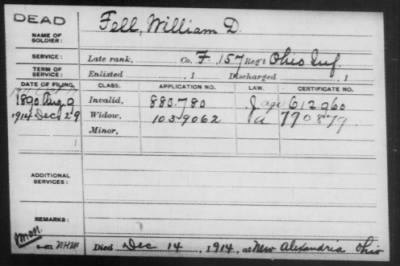 DEAD
NAME OF SOLDIER: Fell, William D.
SERVICE: Late rank, Co. F. 157 Reg't Ohio Inf.
TERM OF SERVICE: Enlisted , 1 Discharged , 1
DATE OF FILING. CLASS. APPLICATION NO. LAW. CERTIFICATE NO.
1890 Aug. 9 Invalid, 880.780 612960
1914 Dec 29 Widow, 1039062 a 770879
Minor,
ADDITIONAL SERVICES:
REMARKS:
Died Dec 14, 1914, at New Alexandria Ohio